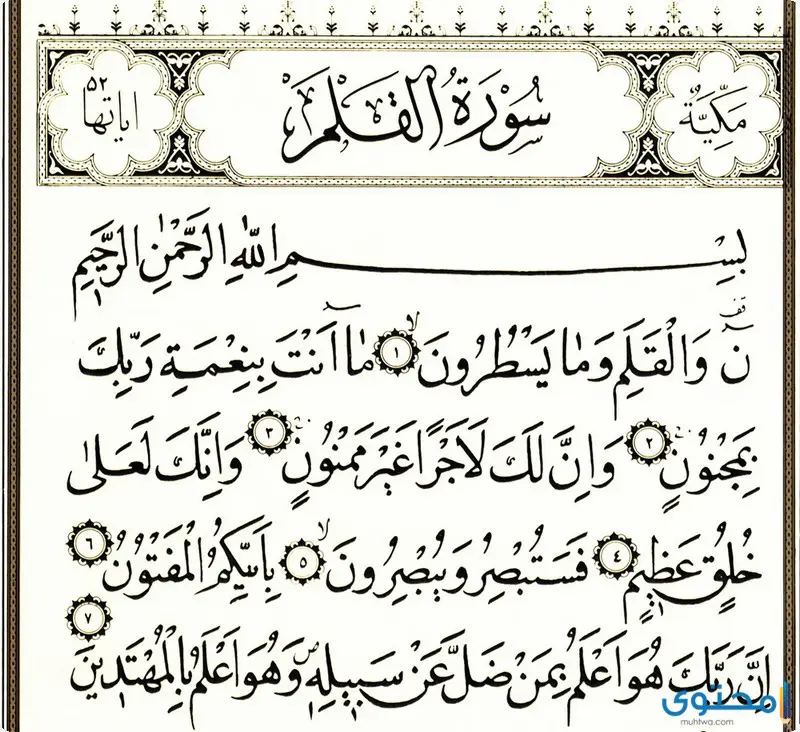 مَكِّيَّةٌ سُورَةُ الْقَلَمِ اياتها ٥٢
بِسْمِ اللّٰهِ الرَّحْمٰنِ الرَّحٖيمِ
نٓ ۚ وَالْقَلَمِ وَمَا يَسْطُرُونَ ﴿١﴾ مَٓا اَنْتَ بِنِعْمَةِ رَبِّكَ
بِمَجْنُونٍ ﴿٢﴾ وَاِنَّ لَكَ لَاَجْرًا غَيْرَ مَمْنُونٍ ﴿٣﴾ وَاِنَّكَ لَعَلٰى
خُلُقٍ عَظٖيمٍ ﴿٤﴾ فَسَتُبْصِرُ وَيُبْصِرُونَ ﴿٥﴾ بِاَيِّكُمُ الْمَفْتُونُ ﴿٦﴾
اِنَّ رَبَّكَ هُوَ اَعْلَمُ بِمَنْ ضَلَّ عَنْ سَبٖيلِهٖ وَهُوَ اَعْلَمُ بِالْمُهْتَدٖينَ ﴿٧﴾
محتوى
muhtwa.com